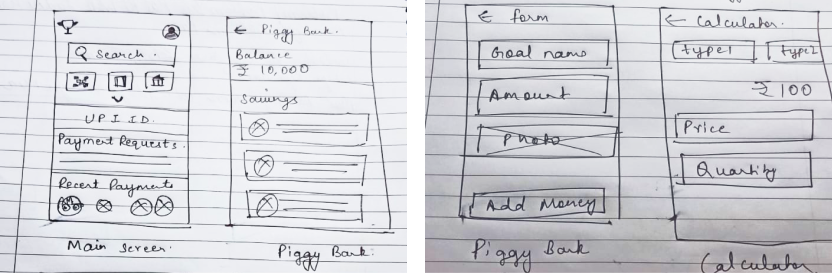 Search.
UPI ID.
Payment Requests.
Recent Payments
Main Screen.
← Piggy Bank.
Balance
₹ 10,000
Savings
Piggy Bank.
← form
Goal name
Amount
Photo
Add Money
Piggy Bank
← Calculator.
type1 type2
₹100
Price
Quantity
Calculator